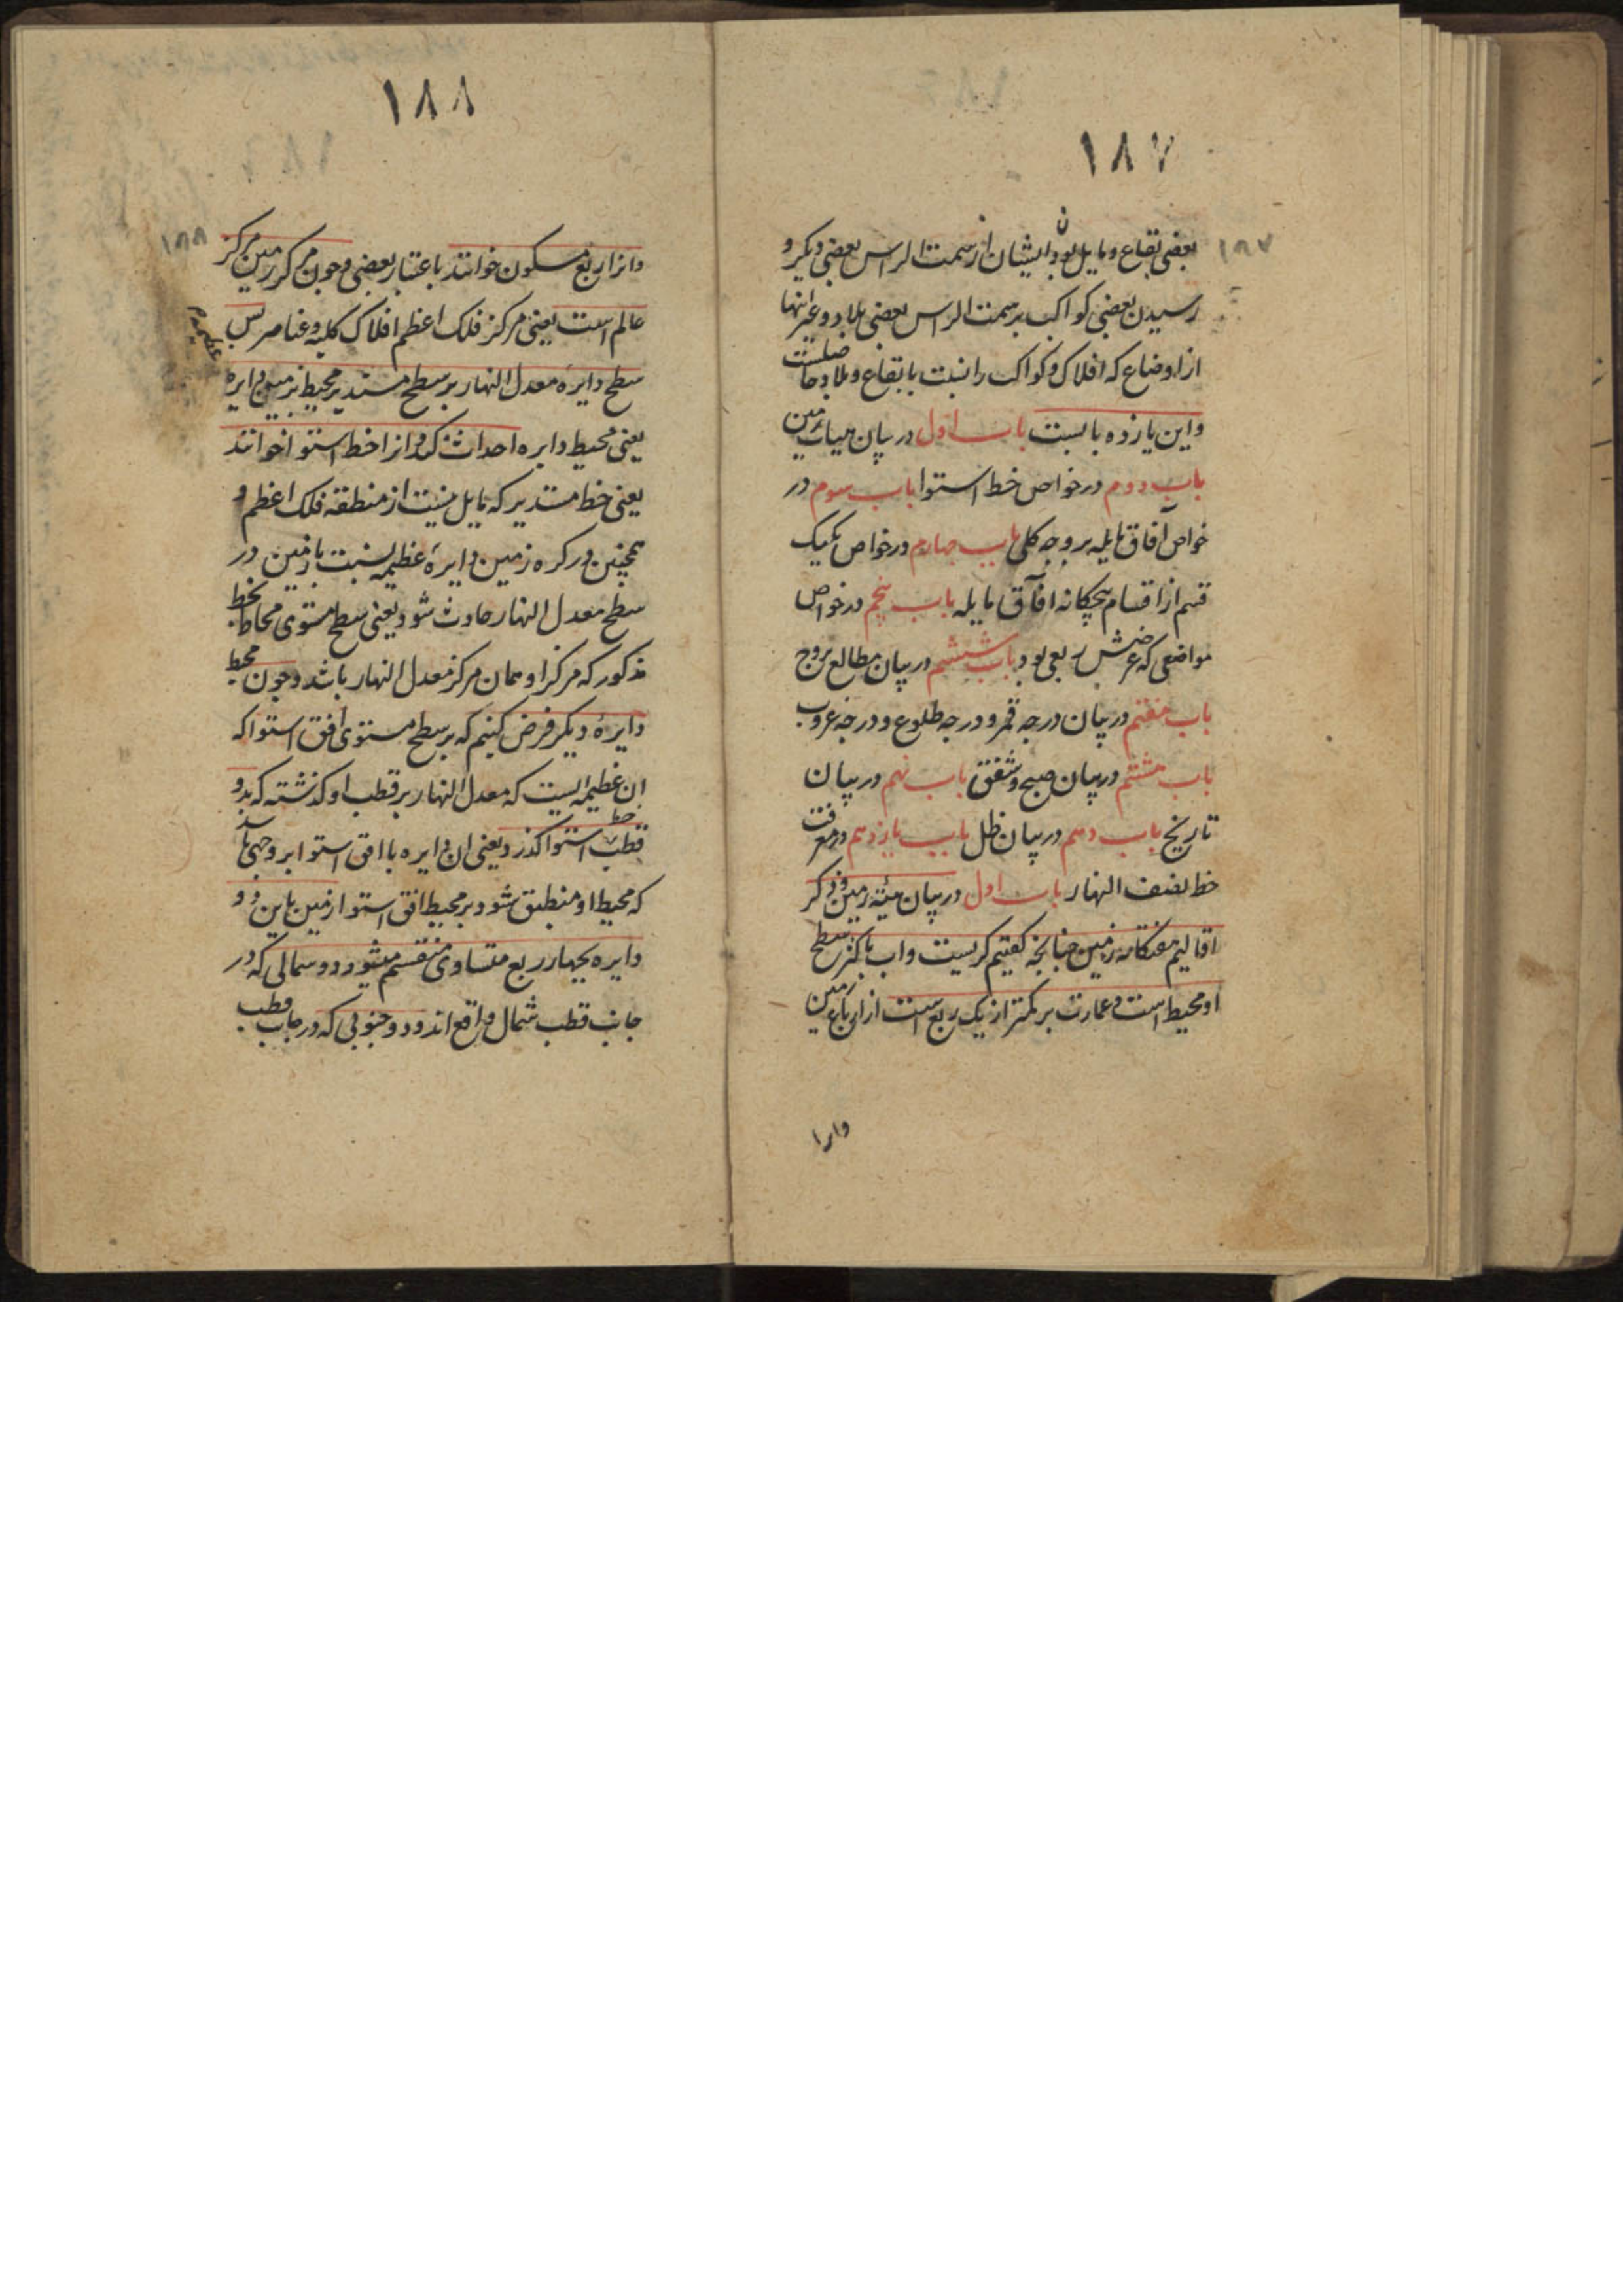 ١٨٧
١٨٧
بعضی بقاع و مایل بودن ایشان از سمت الراس بعضی دیگر و
رسیدن بعضی کواکب بر سمت الراس بعضی بلاد و غیر اینها
از اوضاع که افلاک و کواکب را نسبت با بقاع و بلاد حاصلست
و این یازده بابست باب اول در بیان هیات زمین
باب دوم در خواص خط استوا باب سوم در
خواص آفاق مایله بر وجه کلی باب چهارم در خواص یکیک
قسم از اقسام پنجکانه آفاق مایله باب پنجم در خواص
مواضعی که عرضش ربعی بود باب ششم در بیان مطالع بروج
باب هفتم در بیان درجه قمر و درجه طلوع و درجه غروب
باب هشتم در بیان صبح و شفق باب نهم در بیان
تاریخ باب دهم در بیان ظل باب یازدهم در معرفت
خط نصف النهار باب اول در بیان هیئة زمین و ذکر
اقالیم هفتکانه زمین چنانچه کفتیم کریست و اب باکثر سطح
او محیط است و عمارت بر کمتر از یک ربع است از ارباع زمین
وانرا
١٨٨
١٨٨
وانرا ربع مسکون خوانند باعتبار بعضی و چون مرکز زمین مرکز
عالم است یعنی مرکز فلک اعظم افلاک کلیه و عناصر پس
سطح دایره معدل النهار بر سطح مستدیر محیط زمین دایره
یعنی محیط دایره احداث کند و انرا خط استوا خوانند
یعنی خط مستدیر که مایل نیست از منطقه فلک اعظم و
همچنین در کره زمین دایرهٔ عظیمه نسبت بازمین در
سطح معدل النهار حادث شود یعنی سطح مستوی محاط بخط
مذکور که مرکز او همان مرکز معدل النهار باشد و چون محیط
دایرهٔ دیکر فرض کنیم که بر سطح مستوی افق استوا که
ان عظیمه ایست که معدل النهار بر قطب او کذشته که بدو
قطب خط استوا کذرد یعنی ان دایره با افق استوا بر وجهی باشد
که محیط او منطبق شود بر محیط افق استوا زمین باین دو
دایره بچهار ربع متساوی منقسم میشود دو شمالی که در
جانب قطب شمال واقع اند و دو جنوبی که در جانب قطب